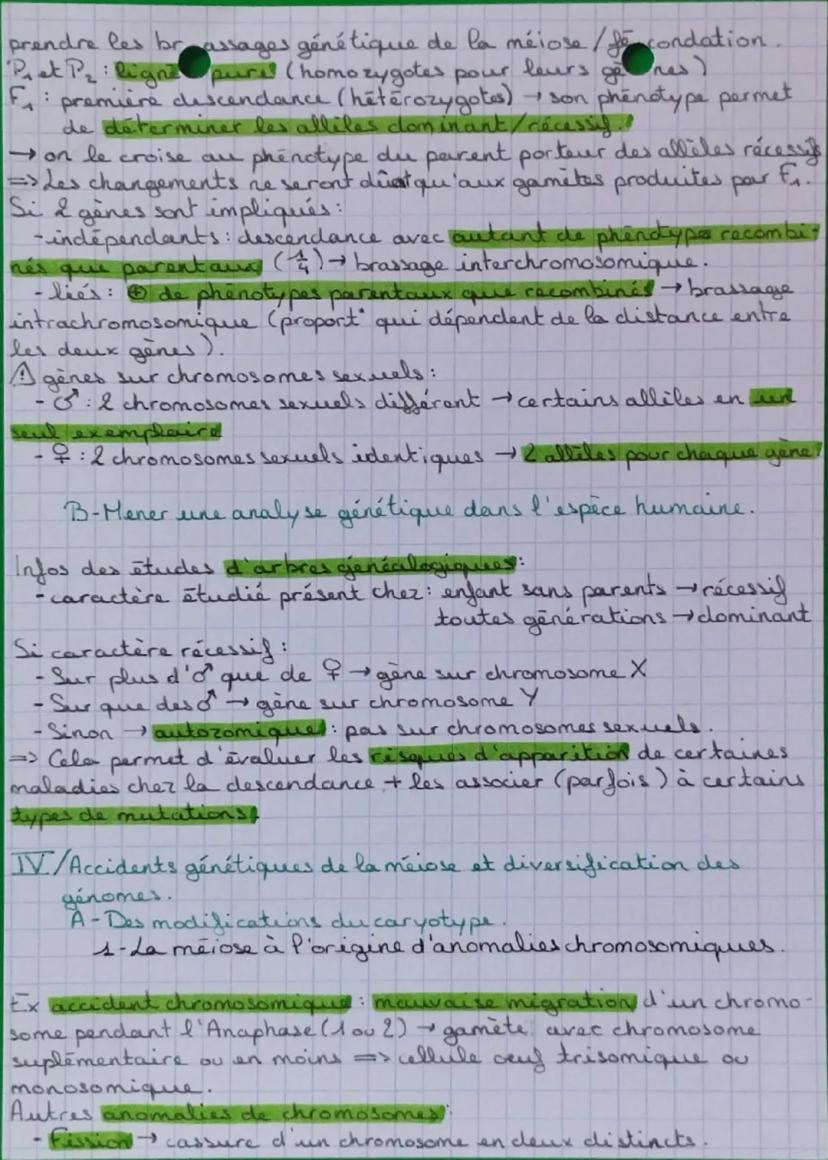 prendre les brassages génétique de la méiose / fécondation.
P1 et P2 : lignée pure (homozygotes pour leurs gènes)
F1 : première descendance (hétérozygotes) → son phénotype permet
de déterminer les allèles dominant/récessif.
→ on le croise au phénotype du parent porteur des allèles récessifs
=> Les changements ne seront dû qu'aux gamètes produites par F1.
Si 2 gènes sont impliqués :
- indépendants : descendance avec autant de phénotypes recombi-
nés que parentaux (1/4) → brassage interchromosomique.
- liés : ⊕ de phénotypes parentaux que recombinés → brassage
intrachromosomique (proport° qui dépendent de la distance entre
les deux gènes).
⚠ gènes sur chromosomes sexuels :
- ♂ : 2 chromosomes sexuels différent → certains allèles en un
seul exemplaire
- ♀ : 2 chromosomes sexuels identiques → 2 allèles pour chaque gène
B-Mener une analyse génétique dans l'espèce humaine.
Infos des études d'arbres généalogiques :
- caractère étudié présent chez : enfant sans parents → récessif
toutes générations → dominant
Si caractère récessif :
- Sur plus d'♂ que de ♀ → gène sur chromosome X
- Sur que des ♂ → gène sur chromosome Y
- Sinon → autozomique : pas sur chromosomes sexuels.
=> Cela permet d'évaluer les risques d'apparition de certaines
maladies chez la descendance + les associer (parfois) à certains
types de mutations.
IV/Accidents génétiques de la méiose et diversification des
génomes.
A-Des modifications du caryotype.
1-La méiose à l'origine d'anomalies chromosomiques.
Ex accident chromosomique : mauvaise migration d'un chromo-
some pendant l'Anaphase (1 ou 2) → gamète avec chromosome
suplémentaire ou en moins => cellule oeuf trisomique ou
monosomique.
Autres anomalies de chromosomes :
- Fission → cassure d'un chromosome en deux distincts.